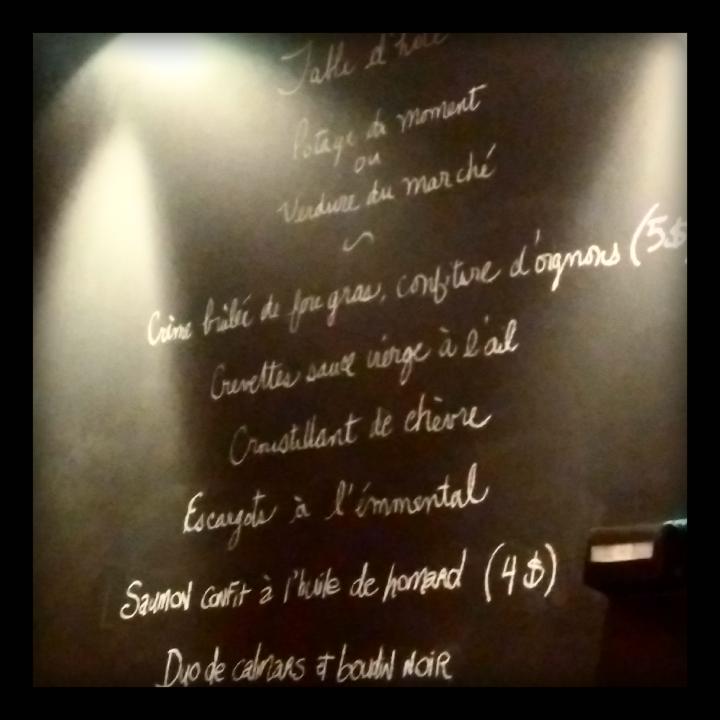 Table d'hôte
Potage du moment
ou
Verdure du marché
Crème brûlée de foie gras, confiture d'oignons (5$)
Crevettes sauce vierge à l'ail
Croustillant de chèvre
Escargots à l'émmental
Saumon confit à l'huile de homard (4$)
Duo de calmars et boudin noir